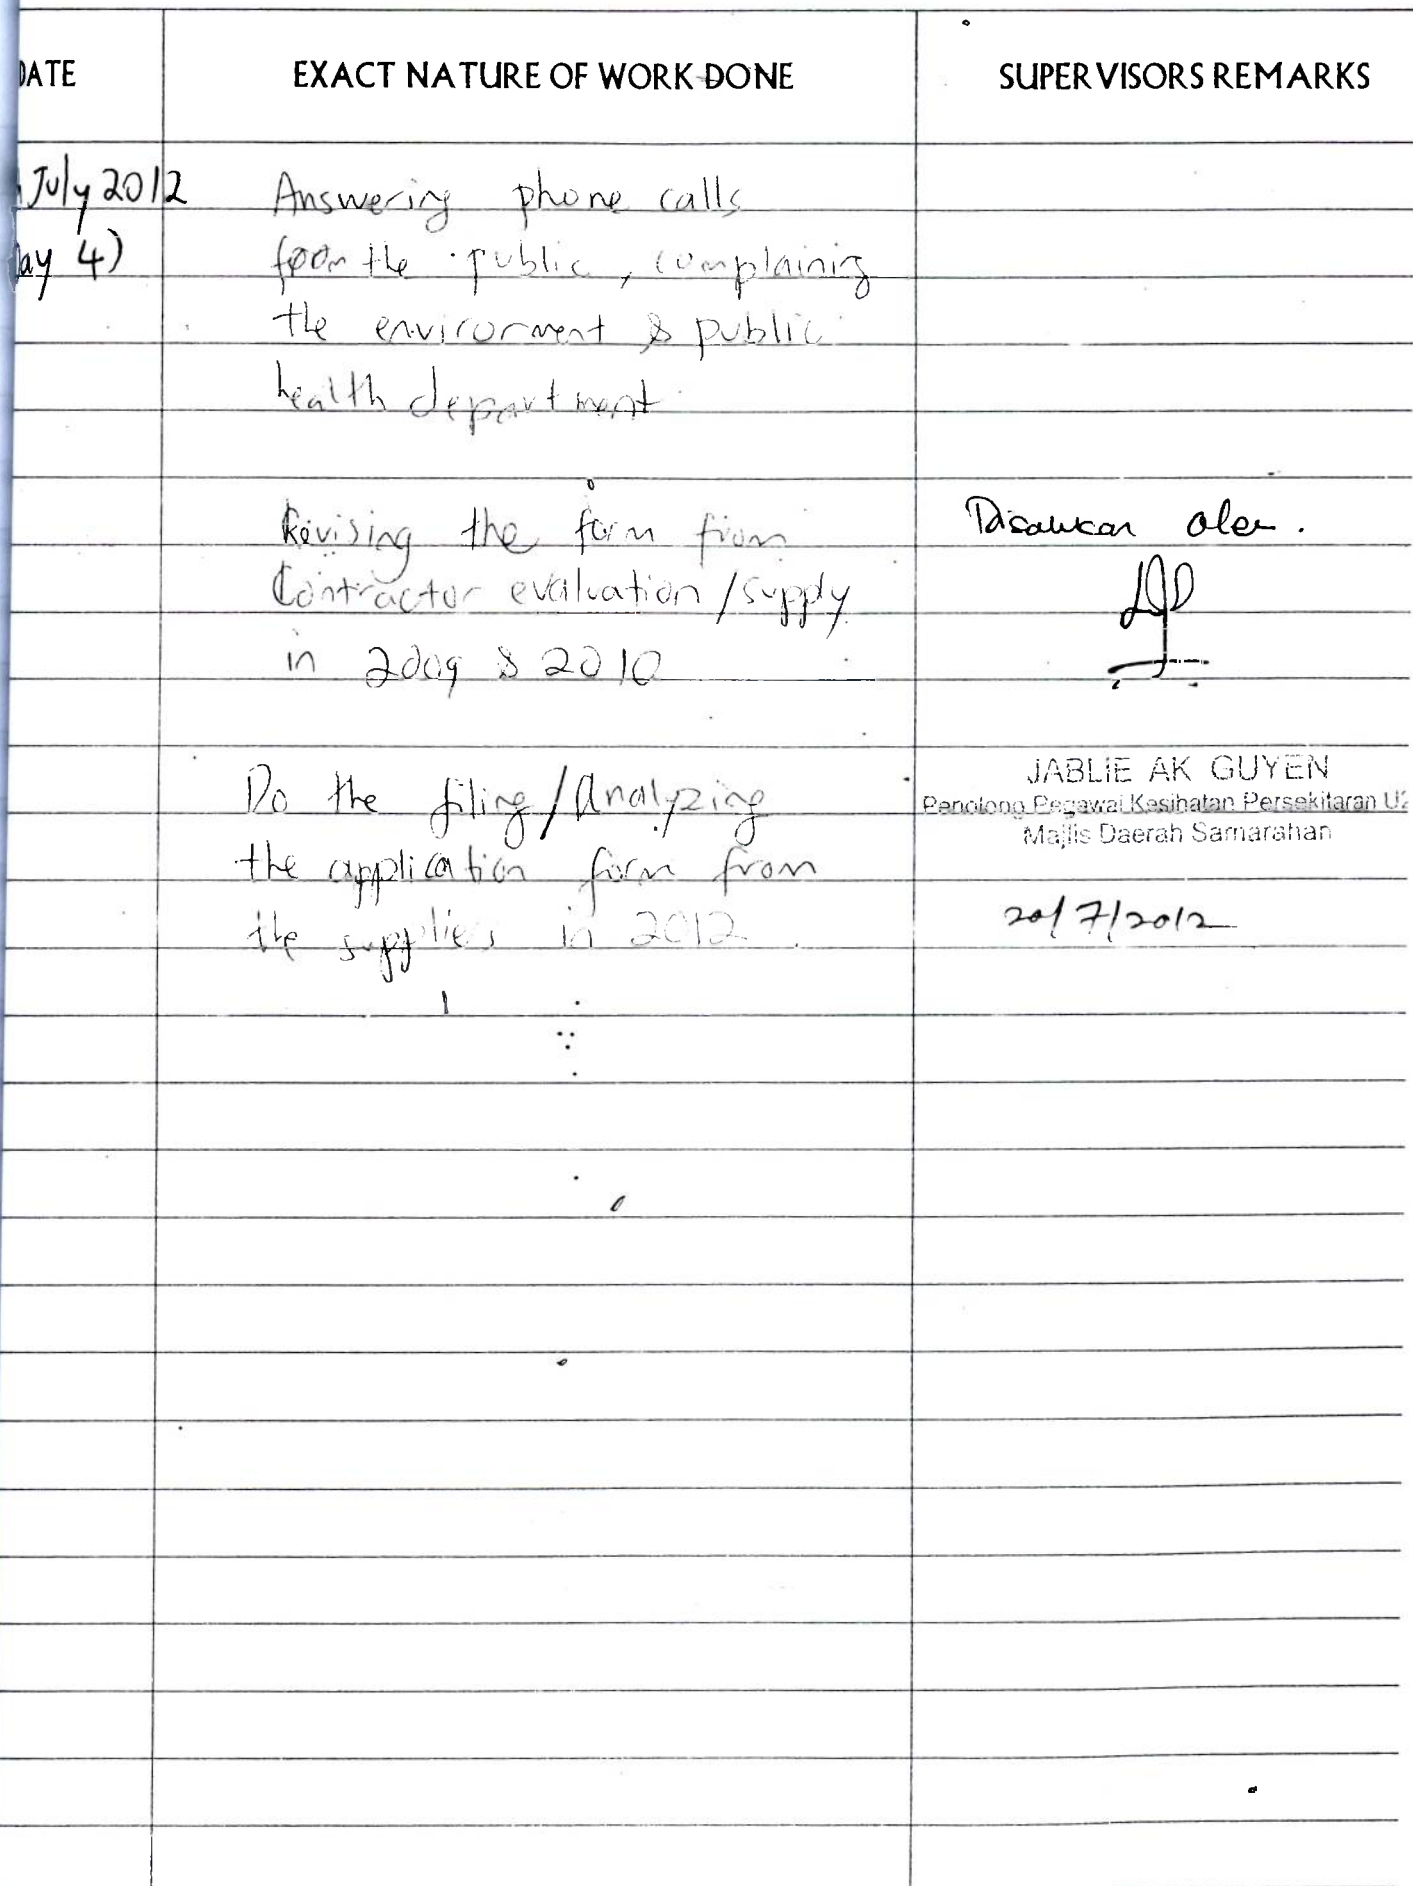 DATE EXACT NATURE OF WORK DONE SUPERVISORS REMARKS
July 2012 Answering phone calls
ay 4) from the public, complaining
the environment & public
health department
Revising the form from
Contractor evaluation/supply
in 2009 & 2010
Disahkan oleh.
Do the filing/Analyzing
the application form from
the suppliers in 2012.
JABLIE AK GUYEN
Penolong Pegawai Kesihatan Persekitaran U2
Majlis Daerah Samarahan
20/7/2012